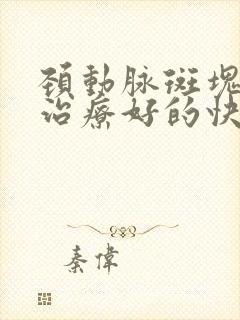 頚動脉斑塊
治療好的快
秦偉